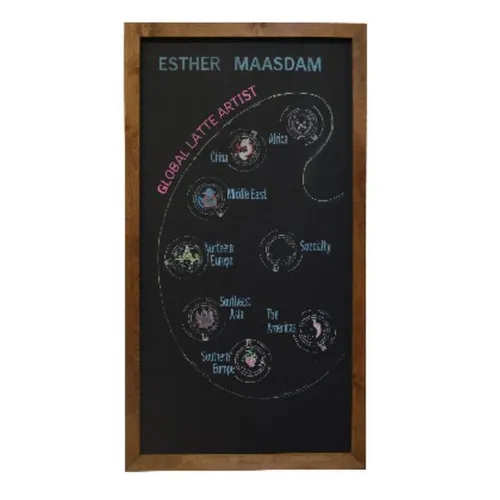 ESTHER MAASDAM
GLOBAL LATTE ARTIST
Africa
China
Middle East
Northern
Europe
Specialty
Southeast
Asia
The
Americas
Southern
Europe